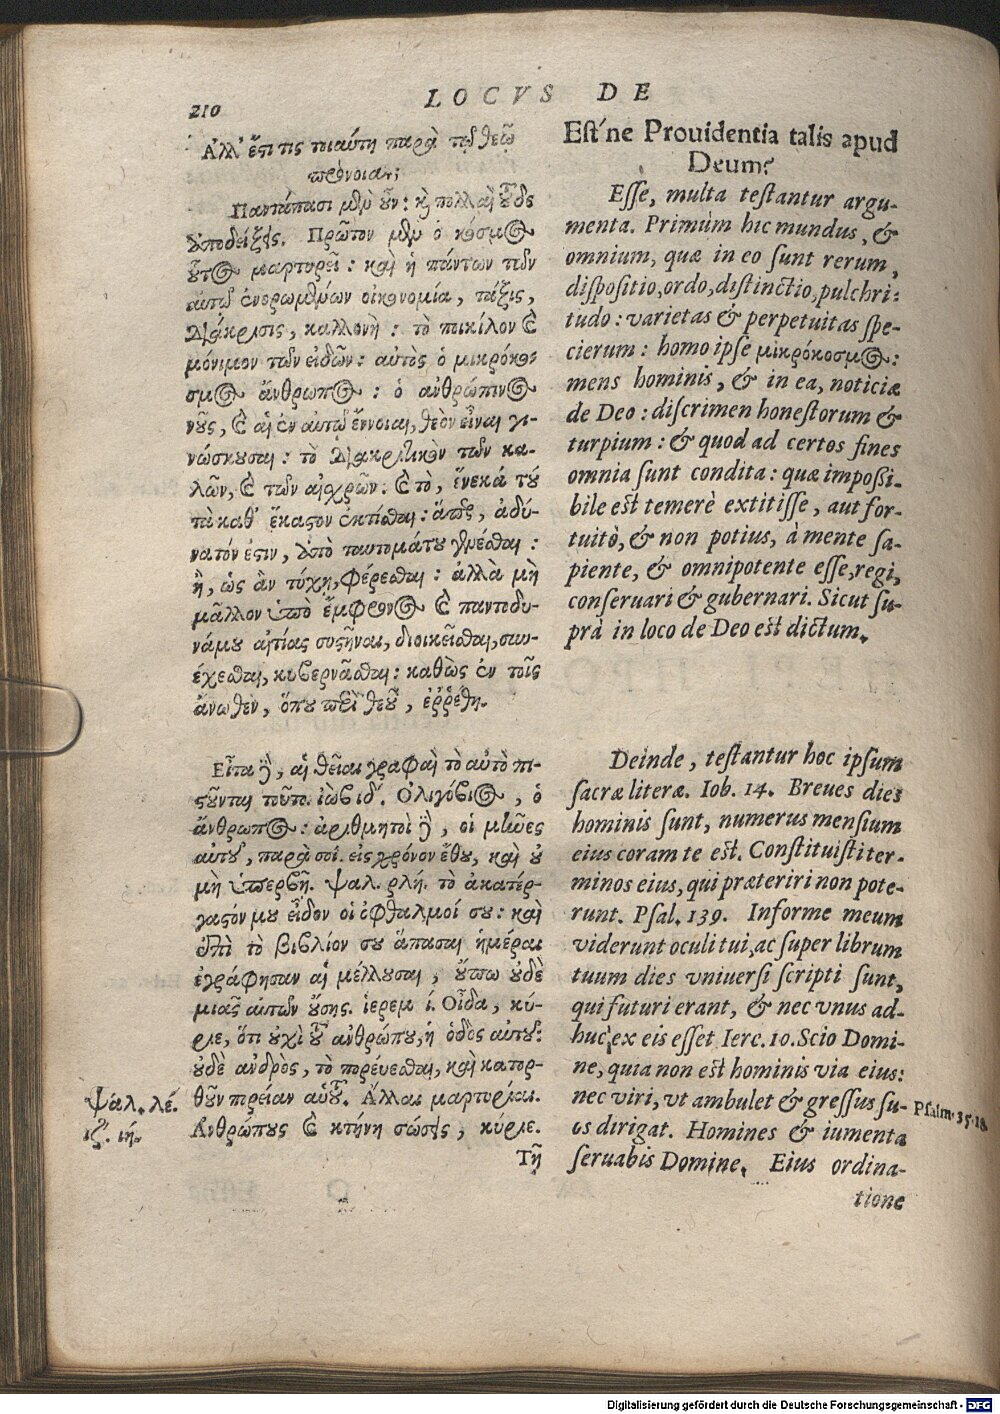 210
LOCVS DE
Ἀλλ' ἔστι τις τοιαύτη παρὰ τῷ θεῷ
πρόνοια;
Παντάπασι μὲν οὖν: καὶ πολλαὶ τοῦδε
ὑποδείξεις. Πρῶτον μὲν ὁ κόσμος
οὗτος μαρτυρεῖ: καὶ ἡ πάντων τῶν
αὐτῷ ἐνορωμένων οἰκονομία, τάξις,
διάκρισις, καλλονὴ: τὸ ποικίλον καὶ
μόνιμον τῶν εἰδῶν: αὐτὸς ὁ μικρόκο-
σμος ἄνθρωπος: ὁ ἀνθρώπινος
νοῦς, καὶ αἱ ἐν αὐτῷ ἔννοιαι, θεὸν εἶναι γι-
νώσκουσαι: τὸ διακριτικὸν τῶν κα-
λῶν, καὶ τῶν αἰσχρῶν: καὶ τὸ, ἕνεκά του
τὰ καθ' ἕκαστον ἐκτίσθαι: ἅπερ, ἀδύ-
νατόν ἐστιν, ἀπὸ ταυτομάτου γενέσθαι:
ἢ, ὡς ἂν τύχῃ, φέρεσθαι: ἀλλὰ μὴ
μᾶλλον ὑπὸ ἔμφρονος καὶ παντοδυ-
νάμου αἰτίας συστῆναι, διοικεῖσθαι, συν-
έχεσθαι, κυβερνᾶσθαι: καθὼς ἐν τοῖς
ἄνωθεν, ὅπου περὶ θεοῦ, ἐῤῥέθη.
Εἶτα δὲ, αἱ θεῖαι γραφαὶ τὸ αὐτὸ πι-
στοῦνται τοῦτο. ἰὼβ ιδ'. Ὀλιγόβιος, ὁ
ἄνθρωπος: ἀριθμητοὶ δὲ, οἱ μῆνες
αὐτοῦ, παρὰ σοί. εἰς χρόνον ἔθου, καὶ οὐ
μὴ ὑπερβῇ. ψαλ. ρλή. τὸ ἀκατέρ-
γαστόν μου εἶδον οἱ ὀφθαλμοί σου: καὶ
ἐπὶ τὸ βιβλίον σου ἅπασαι ἡμέραι
ἐγράφησαν αἱ μέλλουσαι, οὔπω οὐδὲ
μιᾶς αὐτῶν οὔσης. ἱερεμ ί. Οἶδα, κύ-
ριε, ὅτι οὐχὶ τοῦ ἀνθρώπου, ἡ ὁδὸς αὐτοῦ:
οὐδὲ ἀνδρὸς, τὸ πορεύεσθαι, καὶ κατορ-
θοῦν πορείαν αὑτοῦ. Ἄλλαι μαρτυρίαι.
Ἀνθρώπους καὶ κτήνη σώσεις, κύριε.
Τῇ
ψαλ. λέ.
ιζ'. ιή.
Est'ne Prouidentia talis apud
Deum?
Esse, multa testantur argu-
menta. Primùm hic mundus, &
omnium, quæ in eo sunt rerum,
dispositio, ordo, distinctio, pulchri-
tudo: varietas & perpetuitas spe-
cierum: homo ipse μικρόκοσμος:
mens hominis, & in ea, noticiæ
de Deo: discrimen honestorum &
turpium: & quod ad certos fines
omnia sunt condita: quæ impossi-
bile est temerè extitisse, aut for-
tuitò, & non potius, à mente sa-
piente, & omnipotente esse, regi,
conseruari & gubernari. Sicut su-
prà in loco de Deo est dictum.
Deinde, testantur hoc ipsum
sacræ literæ. Iob. 14. Breues dies
hominis sunt, numerus mensium
eius coram te est. Constituisti ter-
minos eius, qui præteriri non pote-
runt. Psal. 139. Informe meum
viderunt oculi tui, ac super librum
tuum dies vniuersi scripti sunt,
qui futuri erant, & nec vnus ad-
huc ex eis esset Ierc. 10. Scio Domi-
ne, quia non est hominis via eius:
nec viri, vt ambulet & gressus su-
os dirigat. Homines & iumenta
seruabis Domine. Eius ordina-
tione
Psalm. 35. 18.
Digitalisierung gefördert durch die Deutsche Forschungsgemeinschaft - DFG